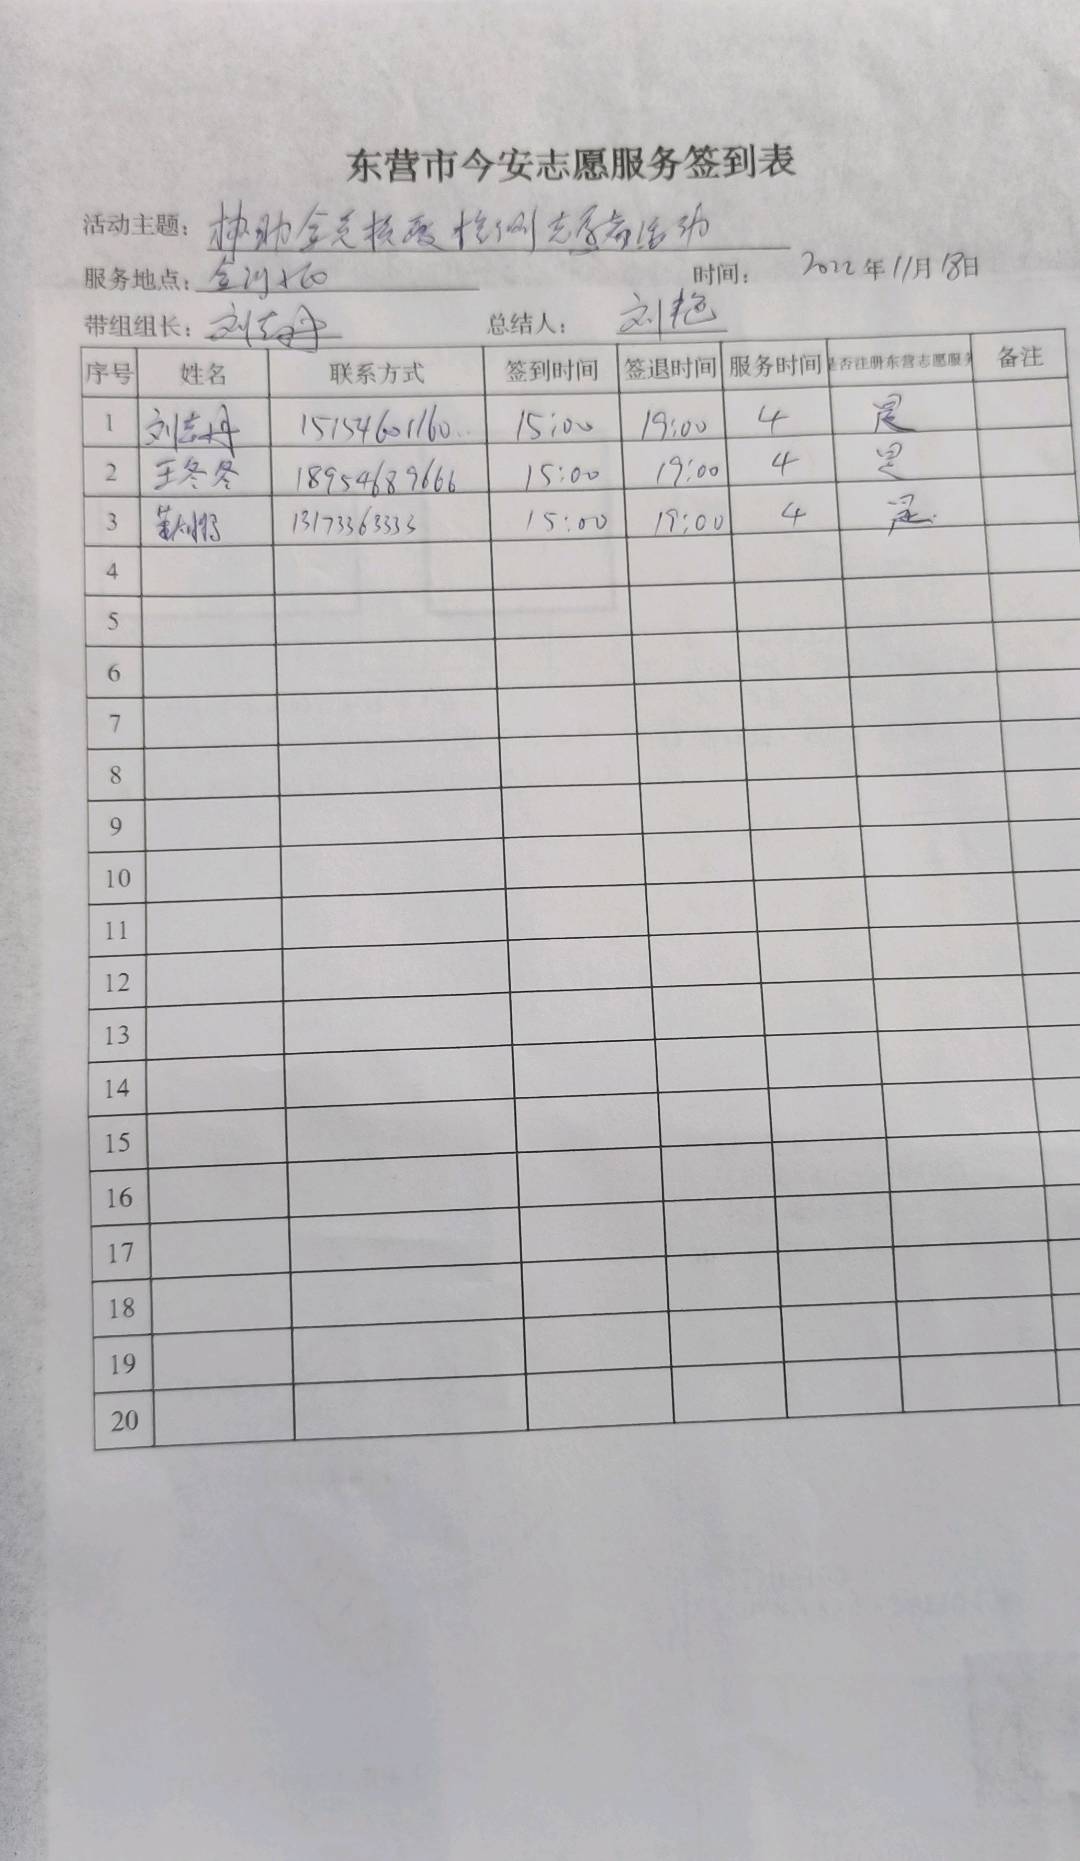 东营市今安志愿服务签到表
活动主题：协助全员核酸检测志愿者活动
服务地点：金河
时间： 2022年11月18日
带组组长：刘志丹 总结人： 刘艳
序号 姓名 联系方式 签到时间 签退时间 服务时间 是否注册东营志愿服务 备注
1 刘志丹 15154601160 15:00 19:00 4 是
2 王冬冬 18954689666 15:00 19:00 4 是
3 13173363333 15:00 19:00 4 是
4
5
6
7
8
9
10
11
12
13
14
15
16
17
18
19
20